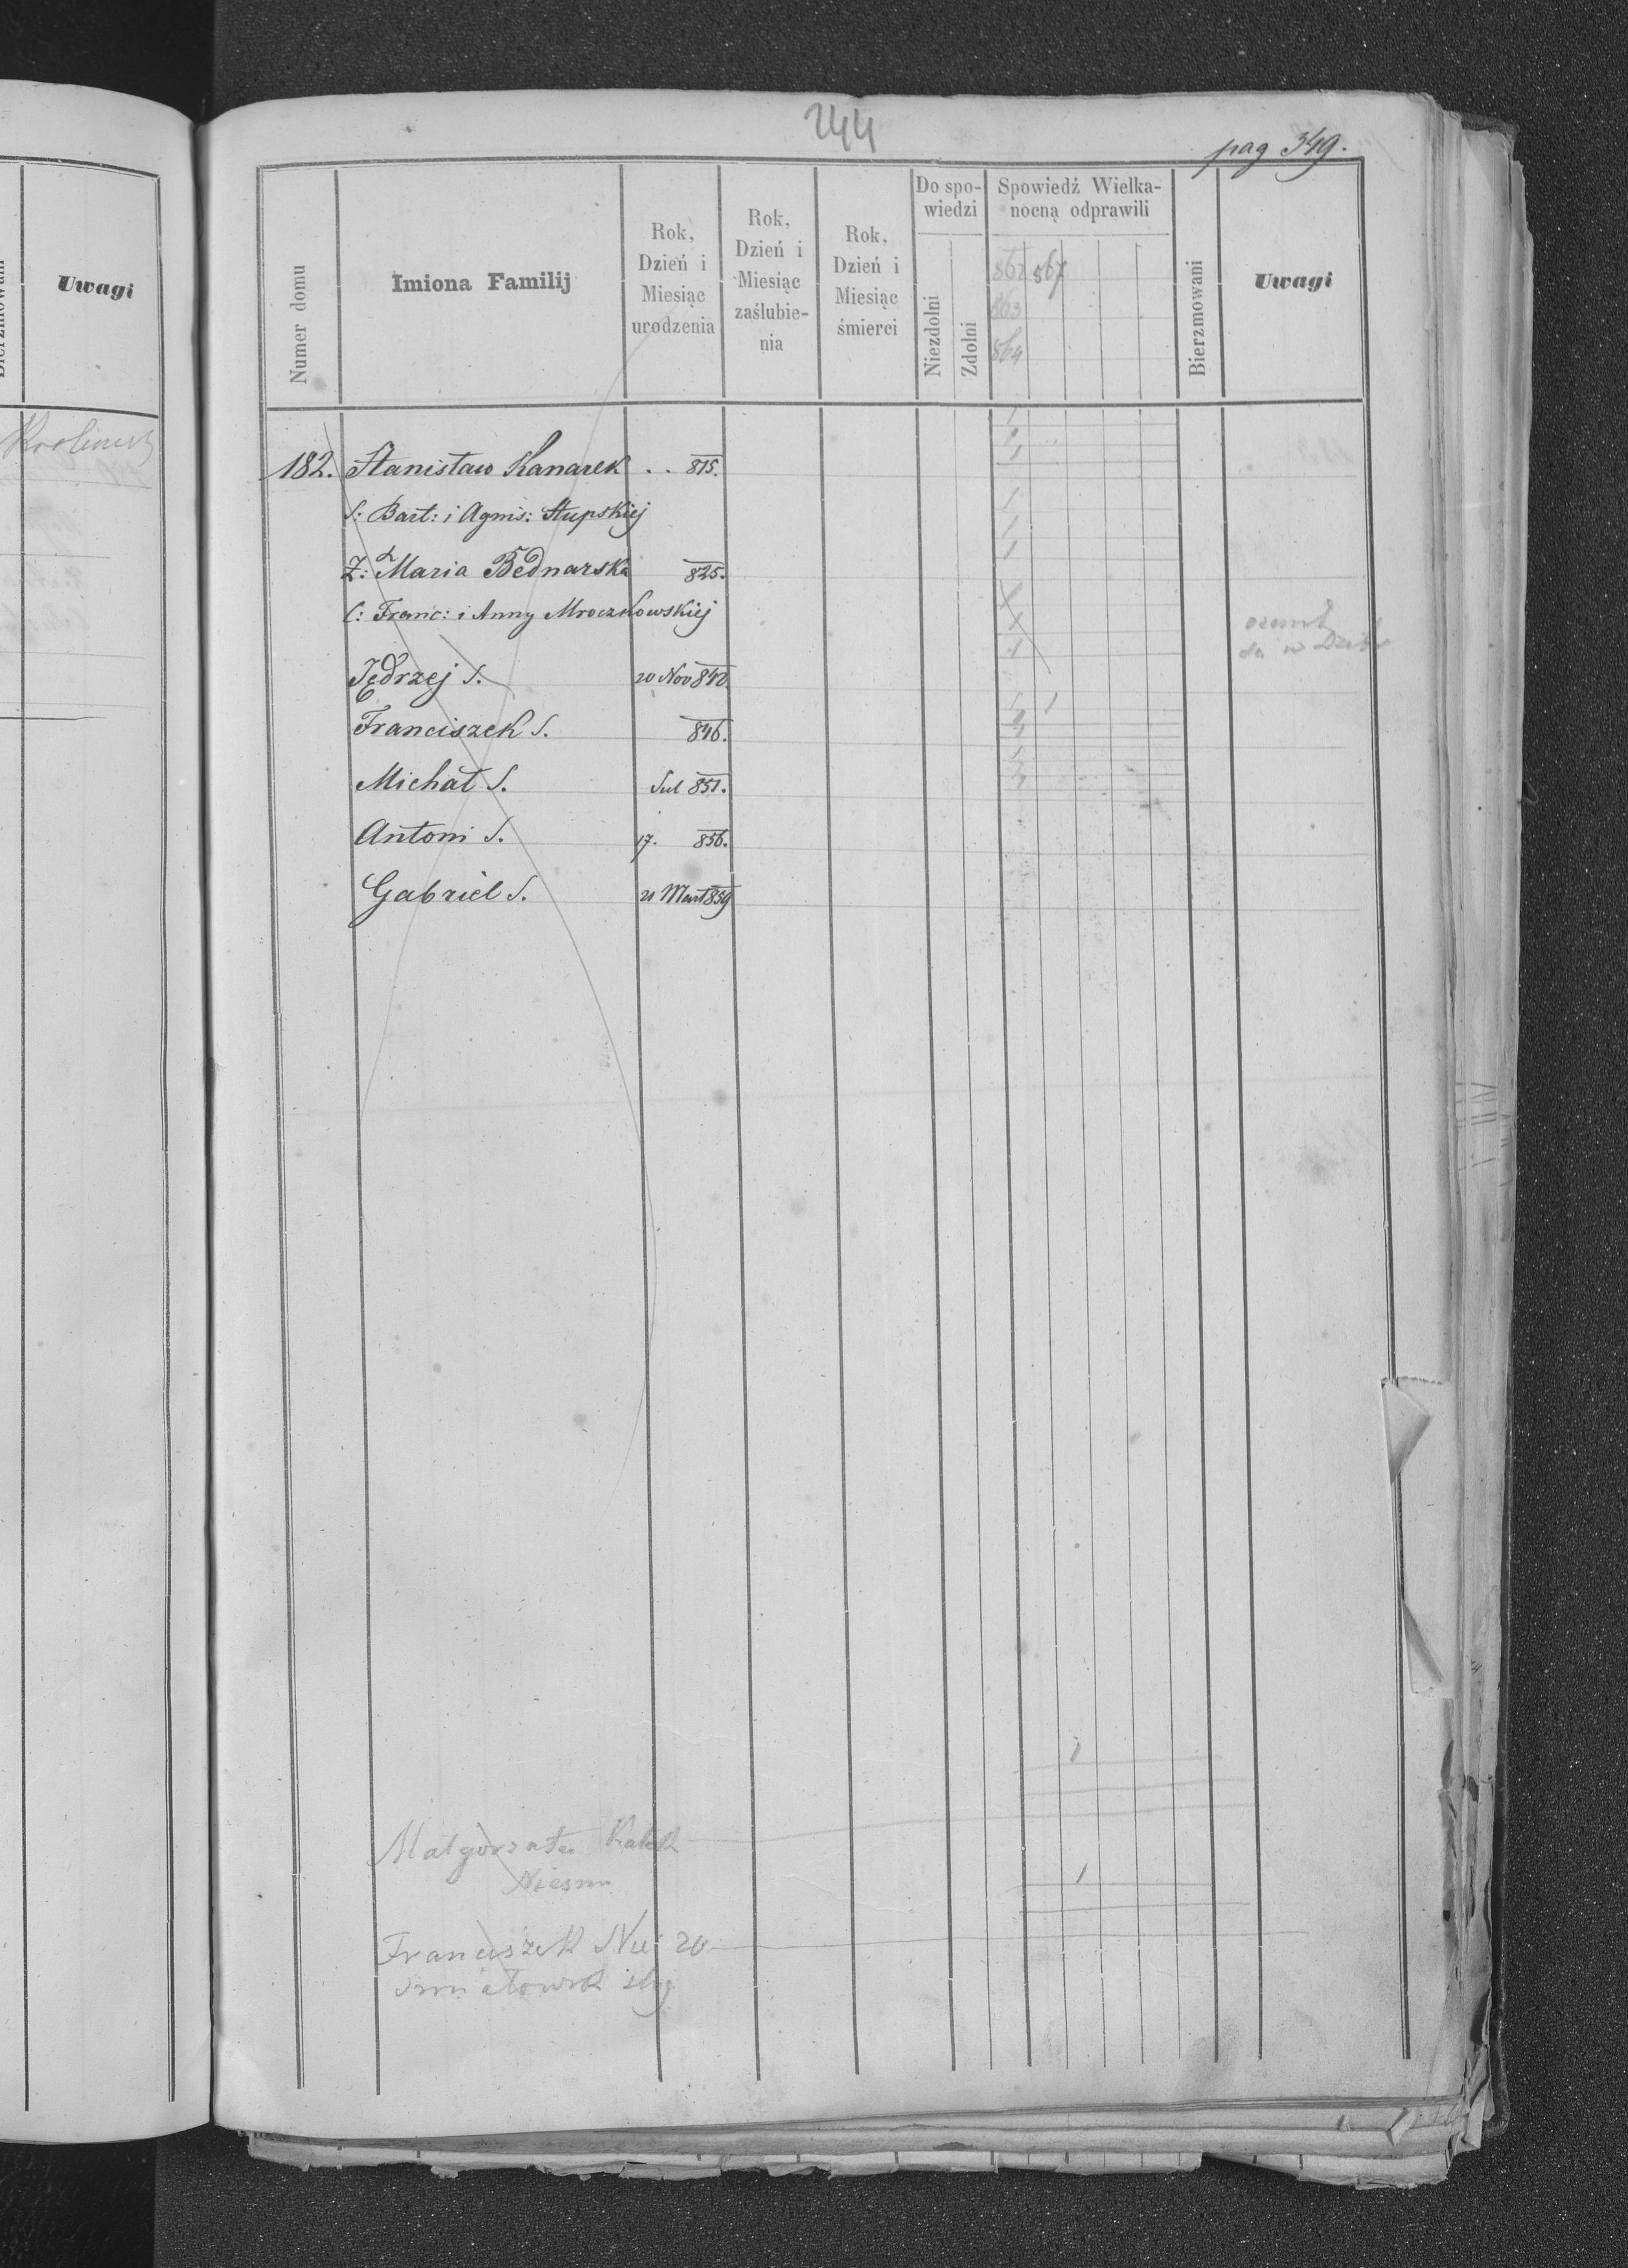 Uwagi
244
pag 349.
Numer domu
Imiona Familij
Rok,
Dzień i
Miesiąc
urodzenia
Rok,
Dzień i
Miesiąc
zaślubie-
nia
Rok,
Dzień i
Miesiąc
śmierci
Do spo-
wiedzi
Niezdolni
Zdolni
Spowiedź Wielka-
nocną odprawili
862 867
863
864
Bierzmowani
Uwagi
182. Stanisław Kanarek . . 815.
S: Bart: i Agnis: Słupskiej
Ż: Maria Bednarska 825.
C: Franc: i Anny Mroczkowskiej
Jędrzej S. 20 Nov 840.
Franciszek S. 846.
Michał S. Jul 851.
Antoni S. 17. 856.
Gabriel S. 21 Mart 859
Małgorzata
Franciszek 20